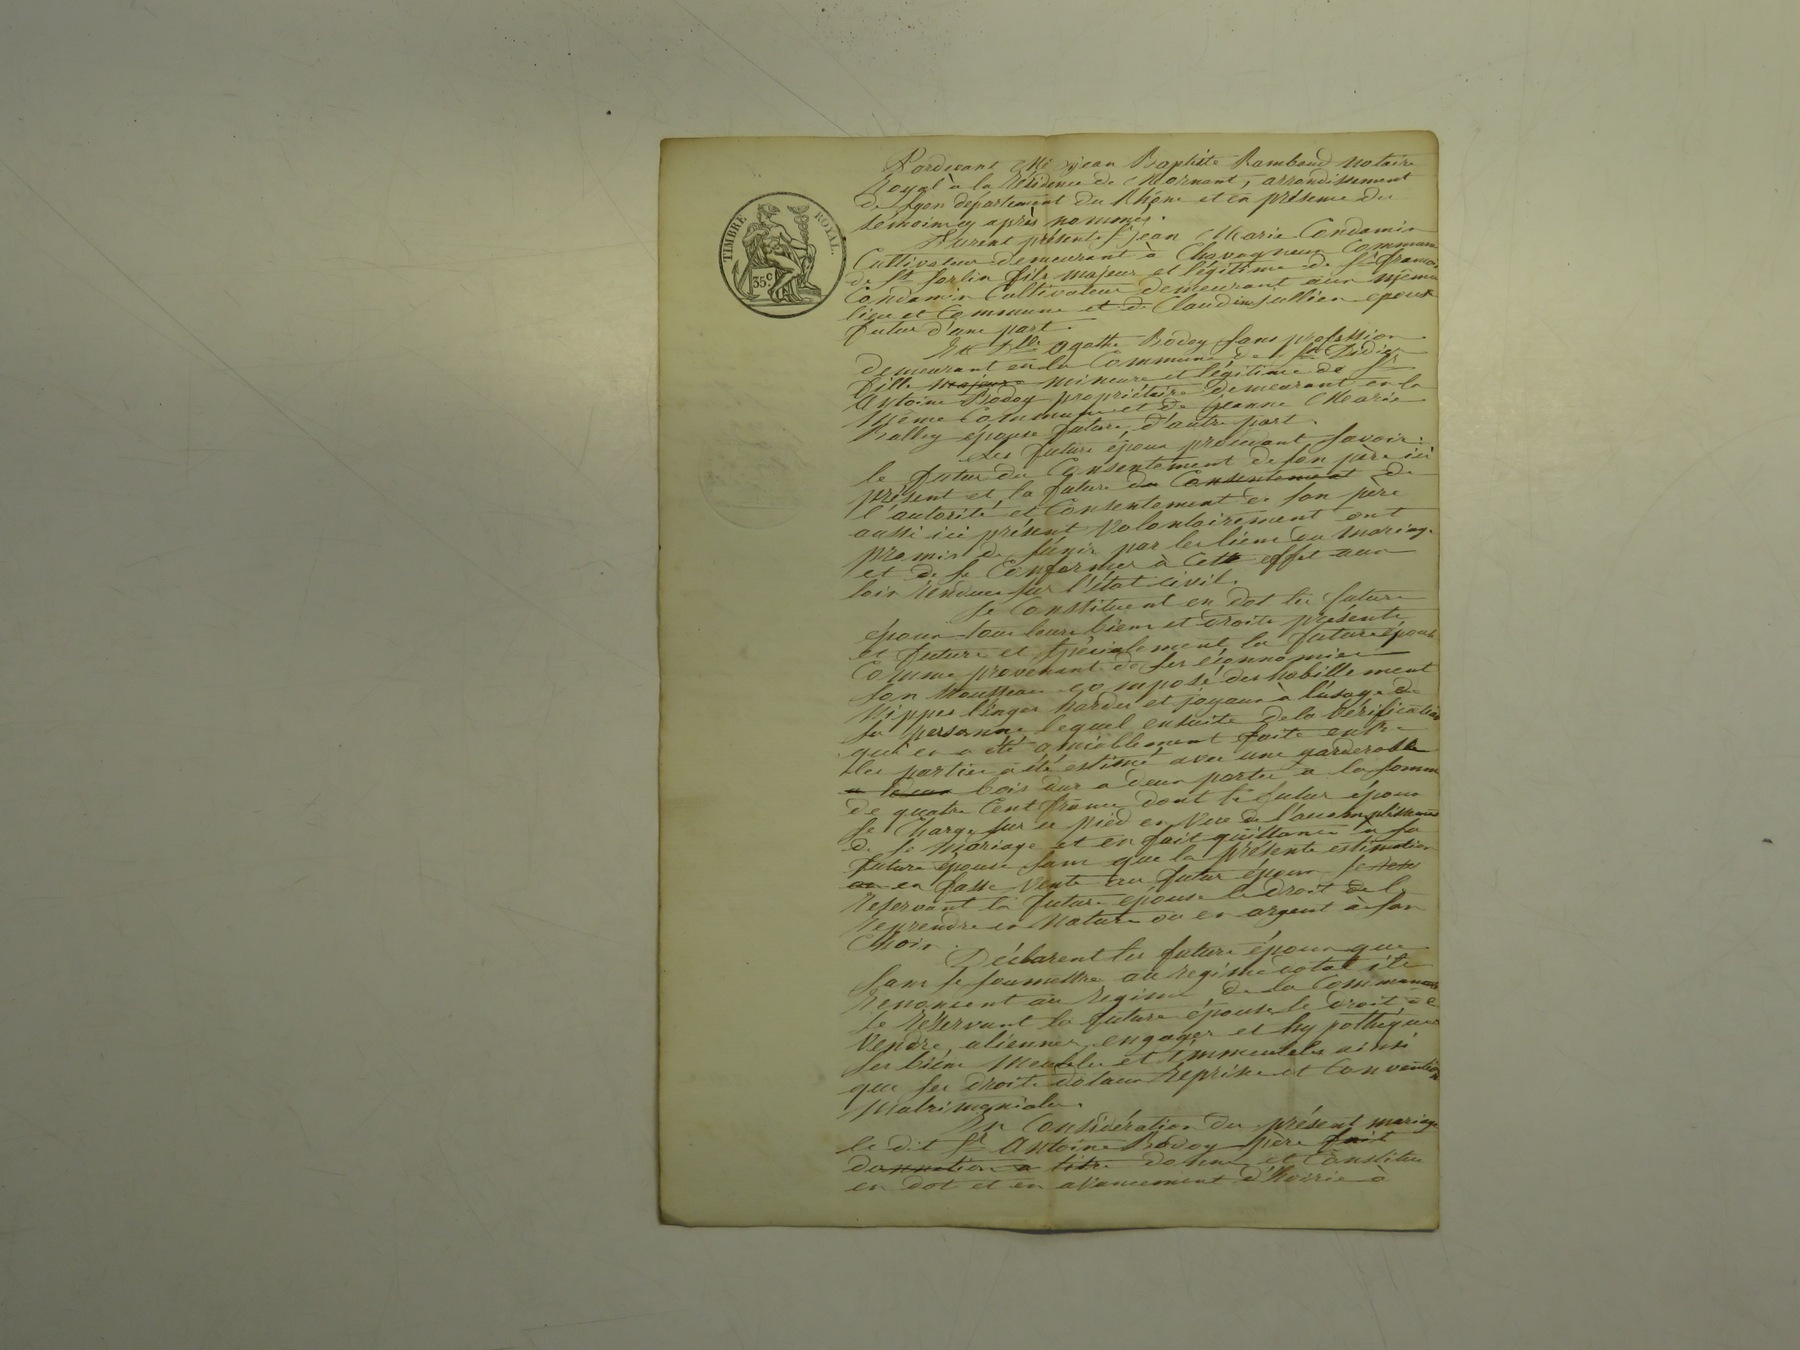 TIMBRE ROYAL
35 c
Pardevant Me jean Baptiste Rambaud Notaire
Royal à la Résidence de Mornant, arrondissement
de Lyon département du Rhône et en présence des
témoins cy après nommés.
Furent présents Sr jean Marie Condamin
Cultivateur demeurant à Chavagneux Commune
de St Sorlin fils majeur et légitime de Sr françois
Condamin Cultivateur demeurant aux mêmes
lieu et Commune et de Claudine jullien epoux
futur d'une part.
Et Dlle Agathe Rodoy sans profession
demeurant en la Commune de St Didier
fille majeure mineure et légitime de Sr
Antoine Rodoy propriétaire demeurant en la
même Commune et de jeanne Marie
épouse future, d'autre part.
Les futurs époux procédant, savoir:
le futur du Consentement de son père ici
présent et la future du Consentement de
l'autorité et Consentement de son père
aussi ici présent volontairement ont
promis de s'unir par les liens du mariage
et de se Conformer à cette effet aux
lois rendues sur l'état civil.
Se Constituent en dot les futurs
époux tous leurs biens et droits présents
et futurs et spécialement la future épouse
Comme provenant de ses économies
son trousseau composé des habillement
nippes linges hardes et joyaux à l'usage de
sa personne lequel ensuite de la vérification
qui en a été amiablement faite entre
les parties a été estimé avec une garderobe
bois dur a deux portes à la somme
de quatre Cent francs dont le futur époux
se Charge sur ce pied en vue de l'accomplissement
de se mariage et en fait quittance à sa
future épouse sans que la présente estimation
en fasse vente au futur époux se
reservant la future épouse le droit de le
reprendre en nature ou en argent à son
Choix.
Déclarent les futurs époux que
sans se soumettre au régime dotal ils
renonsent au régime de la Communauté
se réservant la future épouse le droit de
vendre, aliénner, engager et hypothéquer
ses biens meubles et immeubles ainsi
que ses droits dotaux reprises et Conventions
matrimoniales.
En Considération du présent mariage
le dit Sr Antoine Rodoy père fait
donnation à titre donne et Constitue
en dot et en avancement d'hoirie à